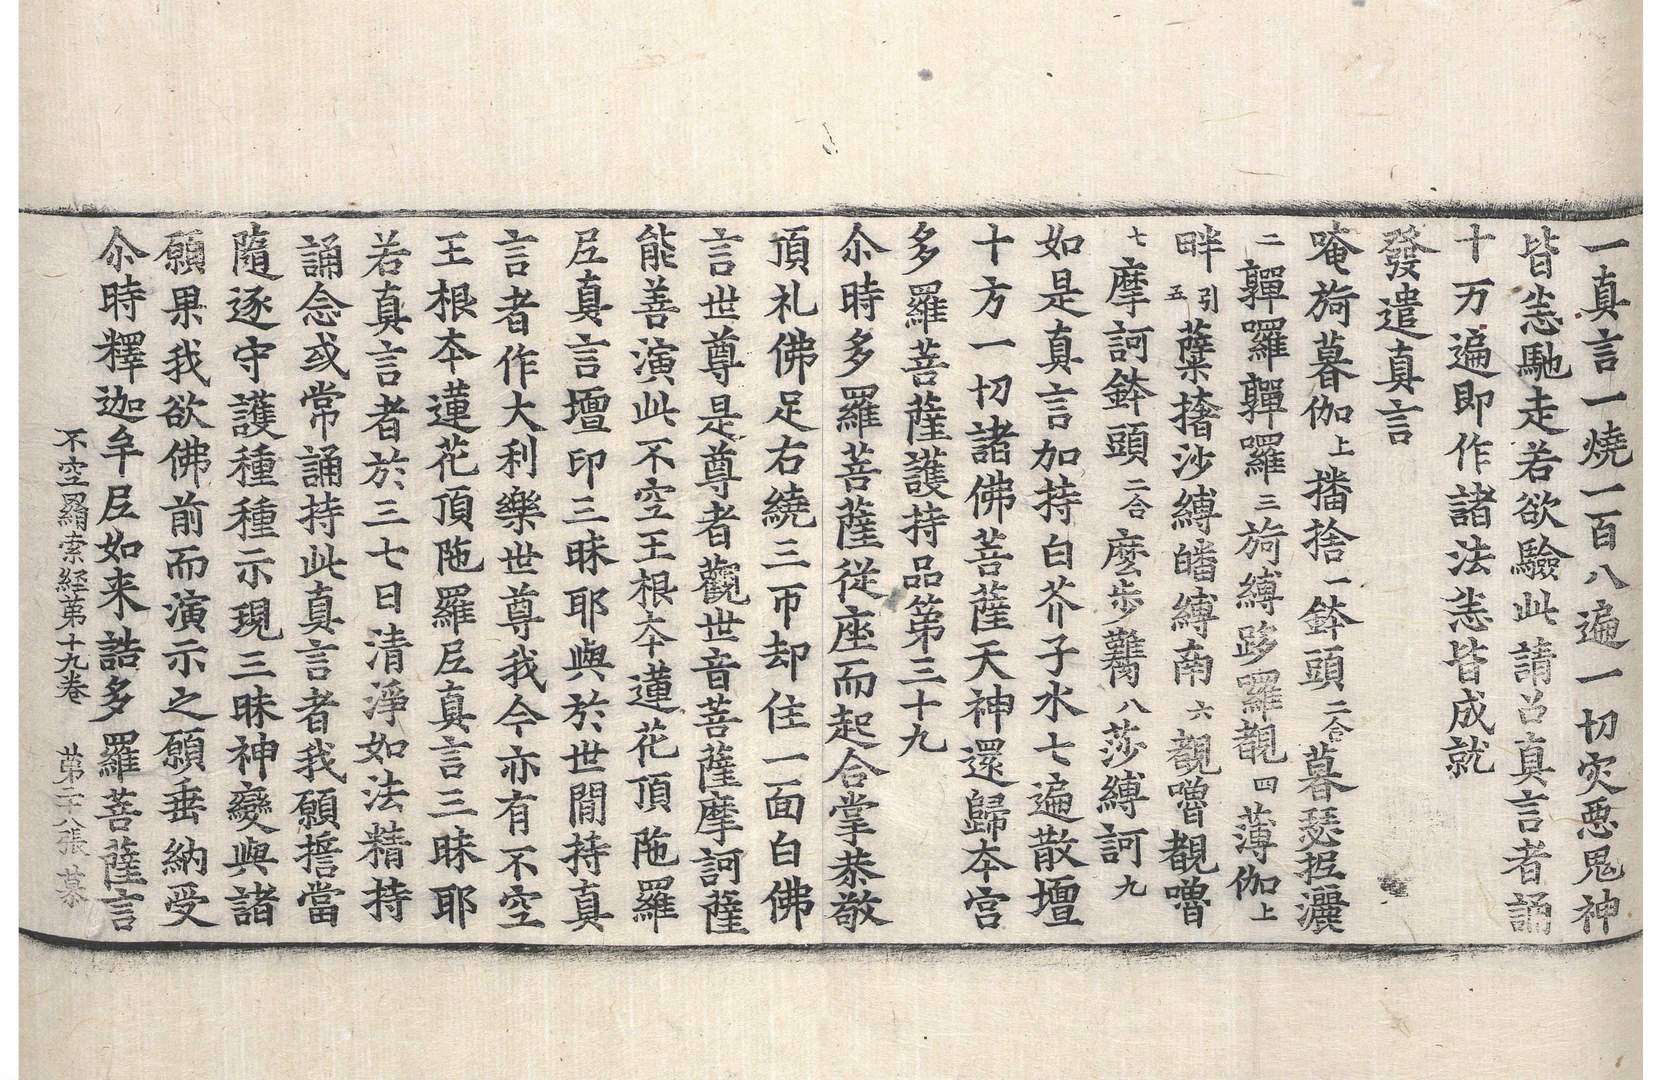 一真言一燒一百八遍一切灾惡鬼神
皆恙馳走若欲驗此請召真言者誦
十万遍即作諸法恙皆成就
發遣真言
唵旖暮伽上播捨一鉢頭二合暮瑟抳灑
二 囉囉三旖縛路羅覩四薄伽上
畔引五蘗搽沙縛皤縛南六覩嚕覩嚕
七摩訶鉢頭二合麽步八莎縛訶九
如是真言加持白芥子水七遍散壇
十方一切諸佛菩薩天神還歸本宫
多羅菩薩護持品第三十九
尒時多羅菩薩從座而起合掌恭敬
頂礼佛足右繞三帀却住一面白佛
言世尊是尊者觀世音菩薩摩訶薩
能善演此不空王根夲蓮花頂陁羅
尼真言壇印三昧耶與於世間持真
言者作大利樂世尊我今亦有不空
王根夲蓮花頂陁羅尼真言三昧耶
若真言者於三七日清淨如法精持
誦念或常誦持此真言者我願誓當
隨逐守護種種示現三昧神變與諸
願果我欲佛前而演示之願垂納受
尒時釋迦牟尼如来誥多羅菩薩言
不空羂索經第十九卷 第二十八張 慕